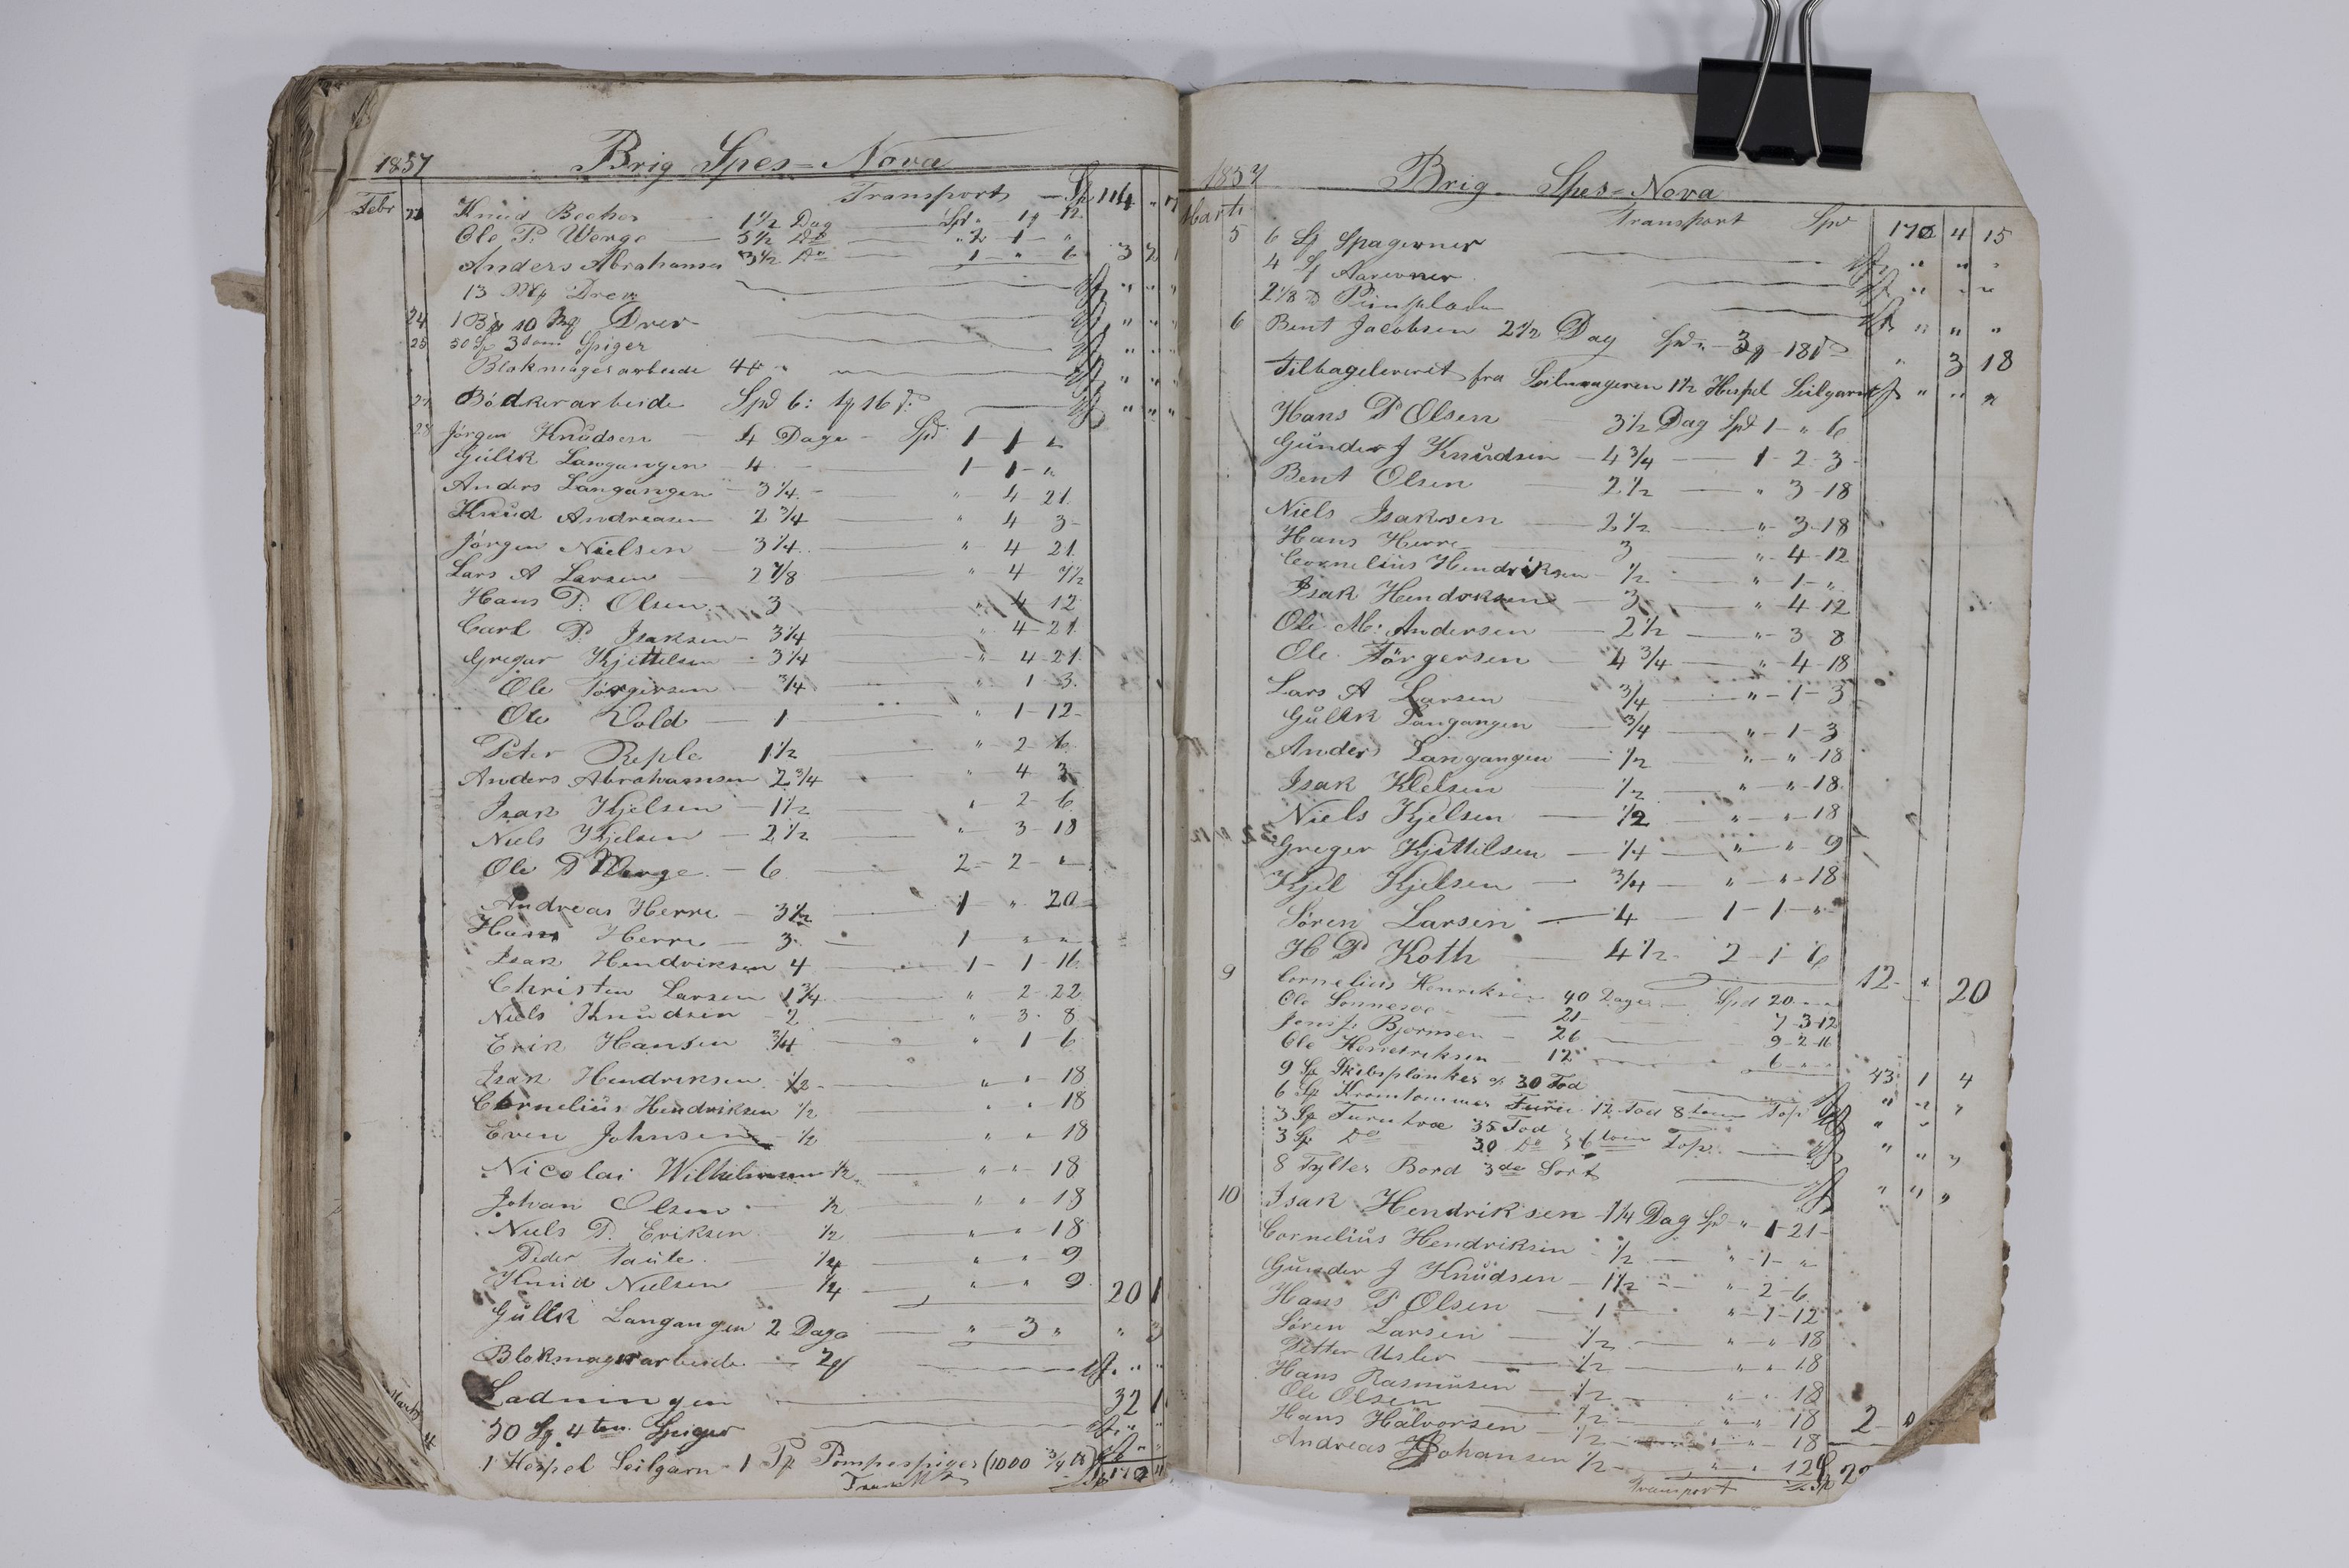 1857 Brig Spes=Nova
Transport — Sp 114 "
Febr 21 Knud Becker 1 1/2 Dag Spd "
Ole P. Werge — 3 1/2 Do — " 2 - 1 - "
Anders Abrahamsen 3 1/2 Do — 1 - " 6 3 2
13 Drev " " "
24 1 10 Drev " " "
25 50 3 tom Spiger " " "
Blokmagerarbeide 4 " " "
27 Bödkerarbeide Spd 6: 16 " " "
28 Jörgen Knudsen — 4 Dage - Spd 1 - 1 - "
Gullik Langangen - 4 — 1 - 1 - "
Anders Langangen - 3 1/4 — " 4 - 21
Knud Andreasen 2 3/4 — " 4 3
Jörgen Nielsen — 3 1/4 — " 4 - 21
Lars A Larsen — 2 7/8 — " 4 - 7 1/2
Hans P. Olsen — 3 " 4 12
Carl P. Isaksen - 3 1/4 — " 4 - 21
Gregar Kjittelsen - 3 1/4 — " 4 - 21
Ole Törgersen — 3/4 — " 1 3
Ole Vold — 1 — " 1 - 12
Peter Reple 1 1/2 — " 2 6
Anders Abrahamsen 2 3/4 — " 4 3
Isak Kjelsen — 1 1/2 — " 2 - 6
Niels Kjelsen — 2 1/2 — " 3 18
Ole P Werge — 6 — 2 - 2 - "
Andreas Herre — 3 1/2 — 1 " 20
Hans Herre — 3 — 1 " "
Isak Hendriksen 4 — 1 - 1 - 16
Christen Larsen 1 3/4 — " 2 - 22
Niels Knudsen — 2 — " 3 - 8
Erik Hansen 3/4 — " 1 - 6
Isak Hendriksen 1/2 — " " 18
Cornelius Hendriksen 1/2 — " " 18
Even Johnsen — 1/2 — " " 18
Nicolai Wilhelmsen 1/2 — " " 18
Johan Olsen — 1/2 — " " 18
Niels P. Eriksen 1/2 — " " 18
Peder Taute — 1/4 — " " 9
Knud Nielsen — 1/4 — " " 9 20 1
Gullik Langangen 2 Dage — " 3 " " 3
Blokmagerarbeide — " "
Ladningen — 32 1
Marts 4 30 4 tom Spiger "
1 Hespel Seilgarn - 1 Pompespiger (1000 3/4
Transport
1857 Brig Spes=Nova
Transport Spd 170 4 15
Marts 5 6 Spagerner " " "
4 Aarerner " " "
2 1/8 Pumplader " " "
6 Bent Jacobsen 2 1/2 Dag Spd " - 3 - 18 " 3 18
Tilbageleveret fra Seilmageren 1 1/2 Hespel Seilgarn " " "
Hans P Olsen — 3 1/2 Dag Spd 1 - " 6
Gunder J Knudsen — 4 3/4 — 1 - 2 - 3
Bent Olsen — 2 1/2 — " 3 - 18
Niels Isaksen — 2 1/2 — " 3 - 18
Hans Herre — 3 — " 4 - 12
Cornelius Hendriksen — 1/2 — " 1 - "
Isak Hendriksen — 3 — " 4 - 12
Ole M. Andersen — 2 1/2 — " 3 8
Ole Törgersen — 4 3/4 — " 4 - 18
Lars A Larsen — 3/4 — " - 1 - 3
Gullik Langangen — 3/4 — " - 1 - 3
Anders Langangen — 1/2 — " " - 18
Isak Kjelsen — 1/2 — " " - 18
Niels Kjelsen — 1/2 — " " - 18
Greger Kjittelsen — 1/4 — " " 9
Kjel Kjelsen — 3/4 — " " - 18
Sören Larsen — 4 — 1 - 1 - "
H P Koth — 4 1/2 - 2 - 1 - 6 12 - " 20
9 Cornelius Henriksen 40 Dage — Spd 20 - " "
Ole — 21 — 7 - 3 - 12
Jens J. Bjornsen — 26 — 9 - 2 - 16
Ole Hendriksen — 12 — 6 - " - " 43 1 4
9 Skibsplanker 30 Fod " " "
6 Kromtommer Furu 12 Fod 8 tom Top " "
3 Furutræ 35 Fod
3 Do 30 Do 36 tom Top — " " "
8 Tylter Bord 3de Sort " " "
10 Isak Hendriksen 1 1/4 Dag Spd " 1 - 21
Cornelius Hendriksen 1/2 — " - 1 - "
Gunder J Knudsen — 1 1/2 — " 2 - 6
Hans P Olsen — 1 — " 1 - 12
Sören Larsen — 1/2 — " " 18
Petter Usler — 1/2 — " " 18
Hans Rasmusen — 1/2 — " " 18
Ole Olsen — 1/2 — " " 18
Hans Halvorsen — 1/2 — " " 18 2
Andreas Johansen 1/2 — " " 12
Transport